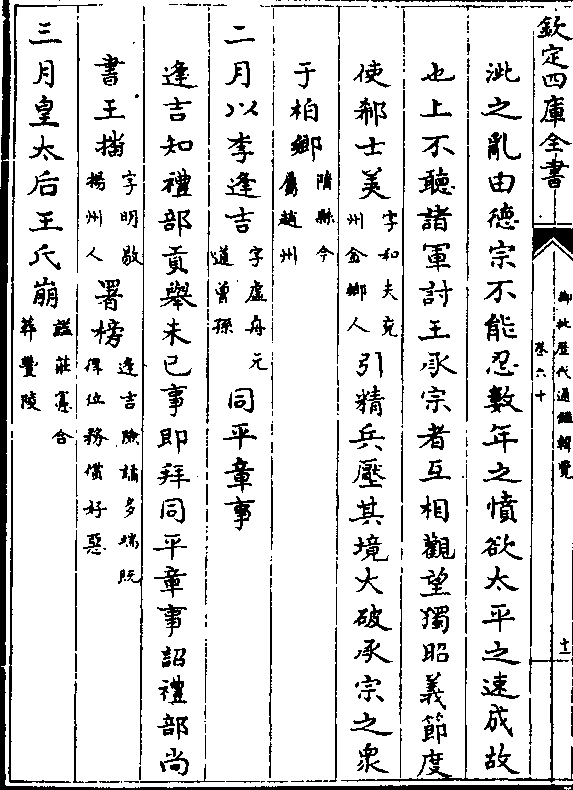 欽定四庫全書
御批歷代通鑑輯覽
卷六十
十一
泚之亂由德宗不能忍數年之憤欲太平之速成故
也上不聽諸軍討王承宗者互相觀望獨昭義節度
使郗士美字和夫兖州金鄉人引精兵壓其境大破承宗之衆
于柏鄉隋縣今屬趙州
二月以李逢吉字虛舟元道曾孫同平章事
逢吉知禮部貢舉未已事即拜同平章事詔禮部尚
書王播字明敭揚州人署榜逢吉險譎多端既得位務償好惡
三月皇太后王氏崩諡莊憲合葬豐陵